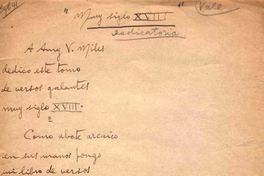 "Muy siglo XVIII"
Vale
Dedicatoria
A Amy V. Miles
dedico este tomo
de versos galantes
muy siglo XVIII.
2
Como abate arcaico
en sus manos pongo
mi libro de versos